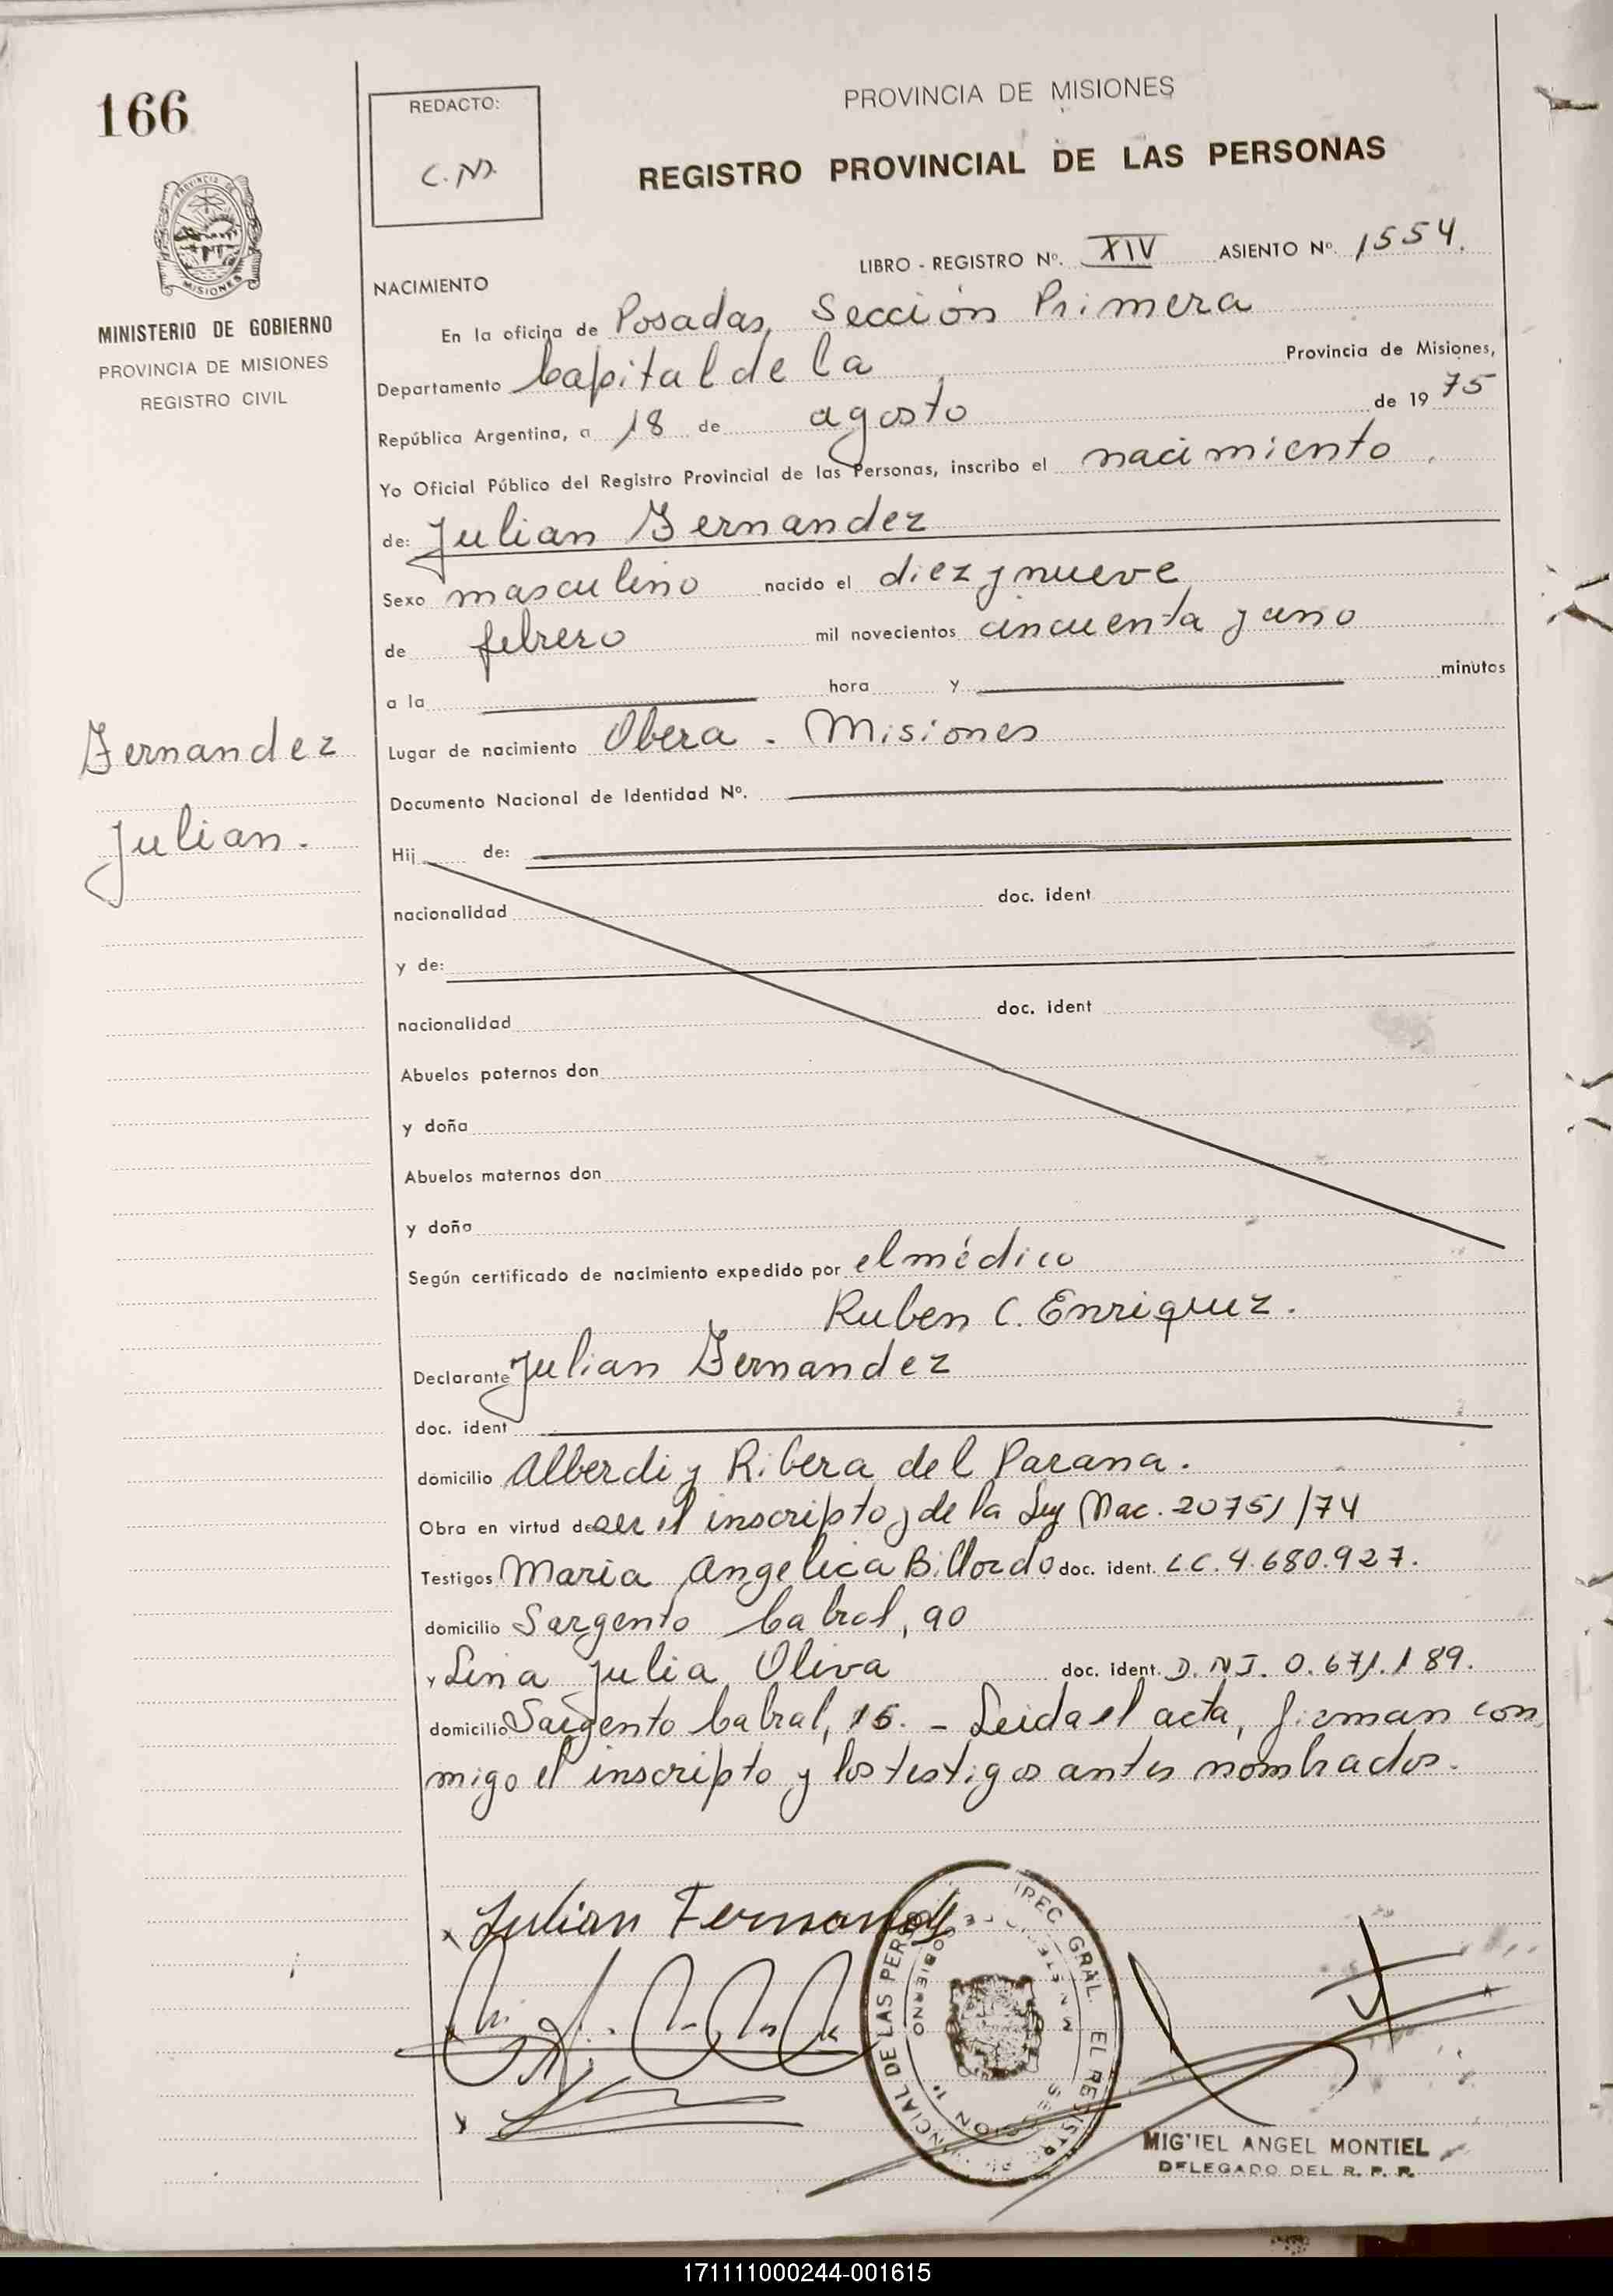 166
REDACTO:
C.N.
PROVINCIA DE MISIONES
REGISTRO PROVINCIAL DE LAS PERSONAS
PROVINCIA DE
MISIONES
MINISTERIO DE GOBIERNO
PROVINCIA DE MISIONES
REGISTRO CIVIL
LIBRO - REGISTRO Nº. XIV ASIENTO Nº. 1554.
NACIMIENTO
En la oficina de Posadas, Sección Primera
Departamento Capital de la Provincia de Misiones,
República Argentina, a 18 de agosto de 1975
Yo Oficial Público del Registro Provincial de las Personas, inscribo el nacimiento
de: Julian Fernandez
Sexo masculino nacido el diez y nueve
de febrero mil novecientos cincuenta y uno
a la hora y minutos
Fernandez
Julian.
Lugar de nacimiento Obera - Misiones
Documento Nacional de Identidad Nº.
Hij de:
nacionalidad doc. ident
y de:
nacionalidad doc. ident
Abuelos paternos don
y doña
Abuelos maternos don
y doña
Según certificado de nacimiento expedido por el médico
Ruben C. Enriquez.
Declarante Julian Fernandez
doc. ident
domicilio Alberdi y Ribera del Parana.
Obra en virtud de ser el inscripto y de la Ley Nac. 20751/74
Testigos Maria Angelica Billordo doc. ident. L.C. 4.680.927.
domicilio Sargento Cabral, 90
y Lina Julia Oliva doc. ident. D.N.I. 0.671.189.
domicilio Sargento Cabral, 15. - Leida el acta, firman con
migo el inscripto y los testigos antes nombrados.
Julian Fernandez
MIGUEL ANGEL MONTIEL
DELEGADO DEL R. P. P.
171111000244-001615